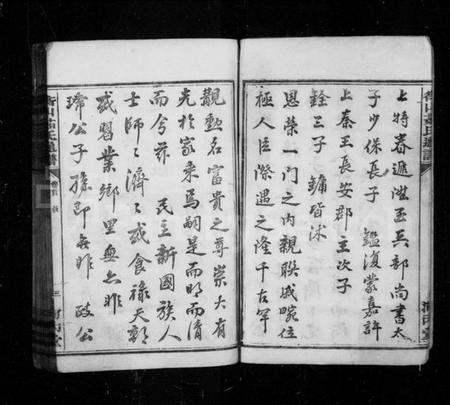 上特眷遞陞至兵部尚書太
子少保長子　鑑復蒙嘉許
上秦王長安郡主次子
銓三子　鏞皆沐
恩榮一門之內親聯戚畹位
極人臣際遇之隆千古罕
覯勳名富貴之尊崇大有
光於家乘焉嗣是而明而清
而今茲　民主新國族人
士師師濟濟或食祿天朝
或習業鄉里無亦昨
瑞公子孫即吾昨　政公